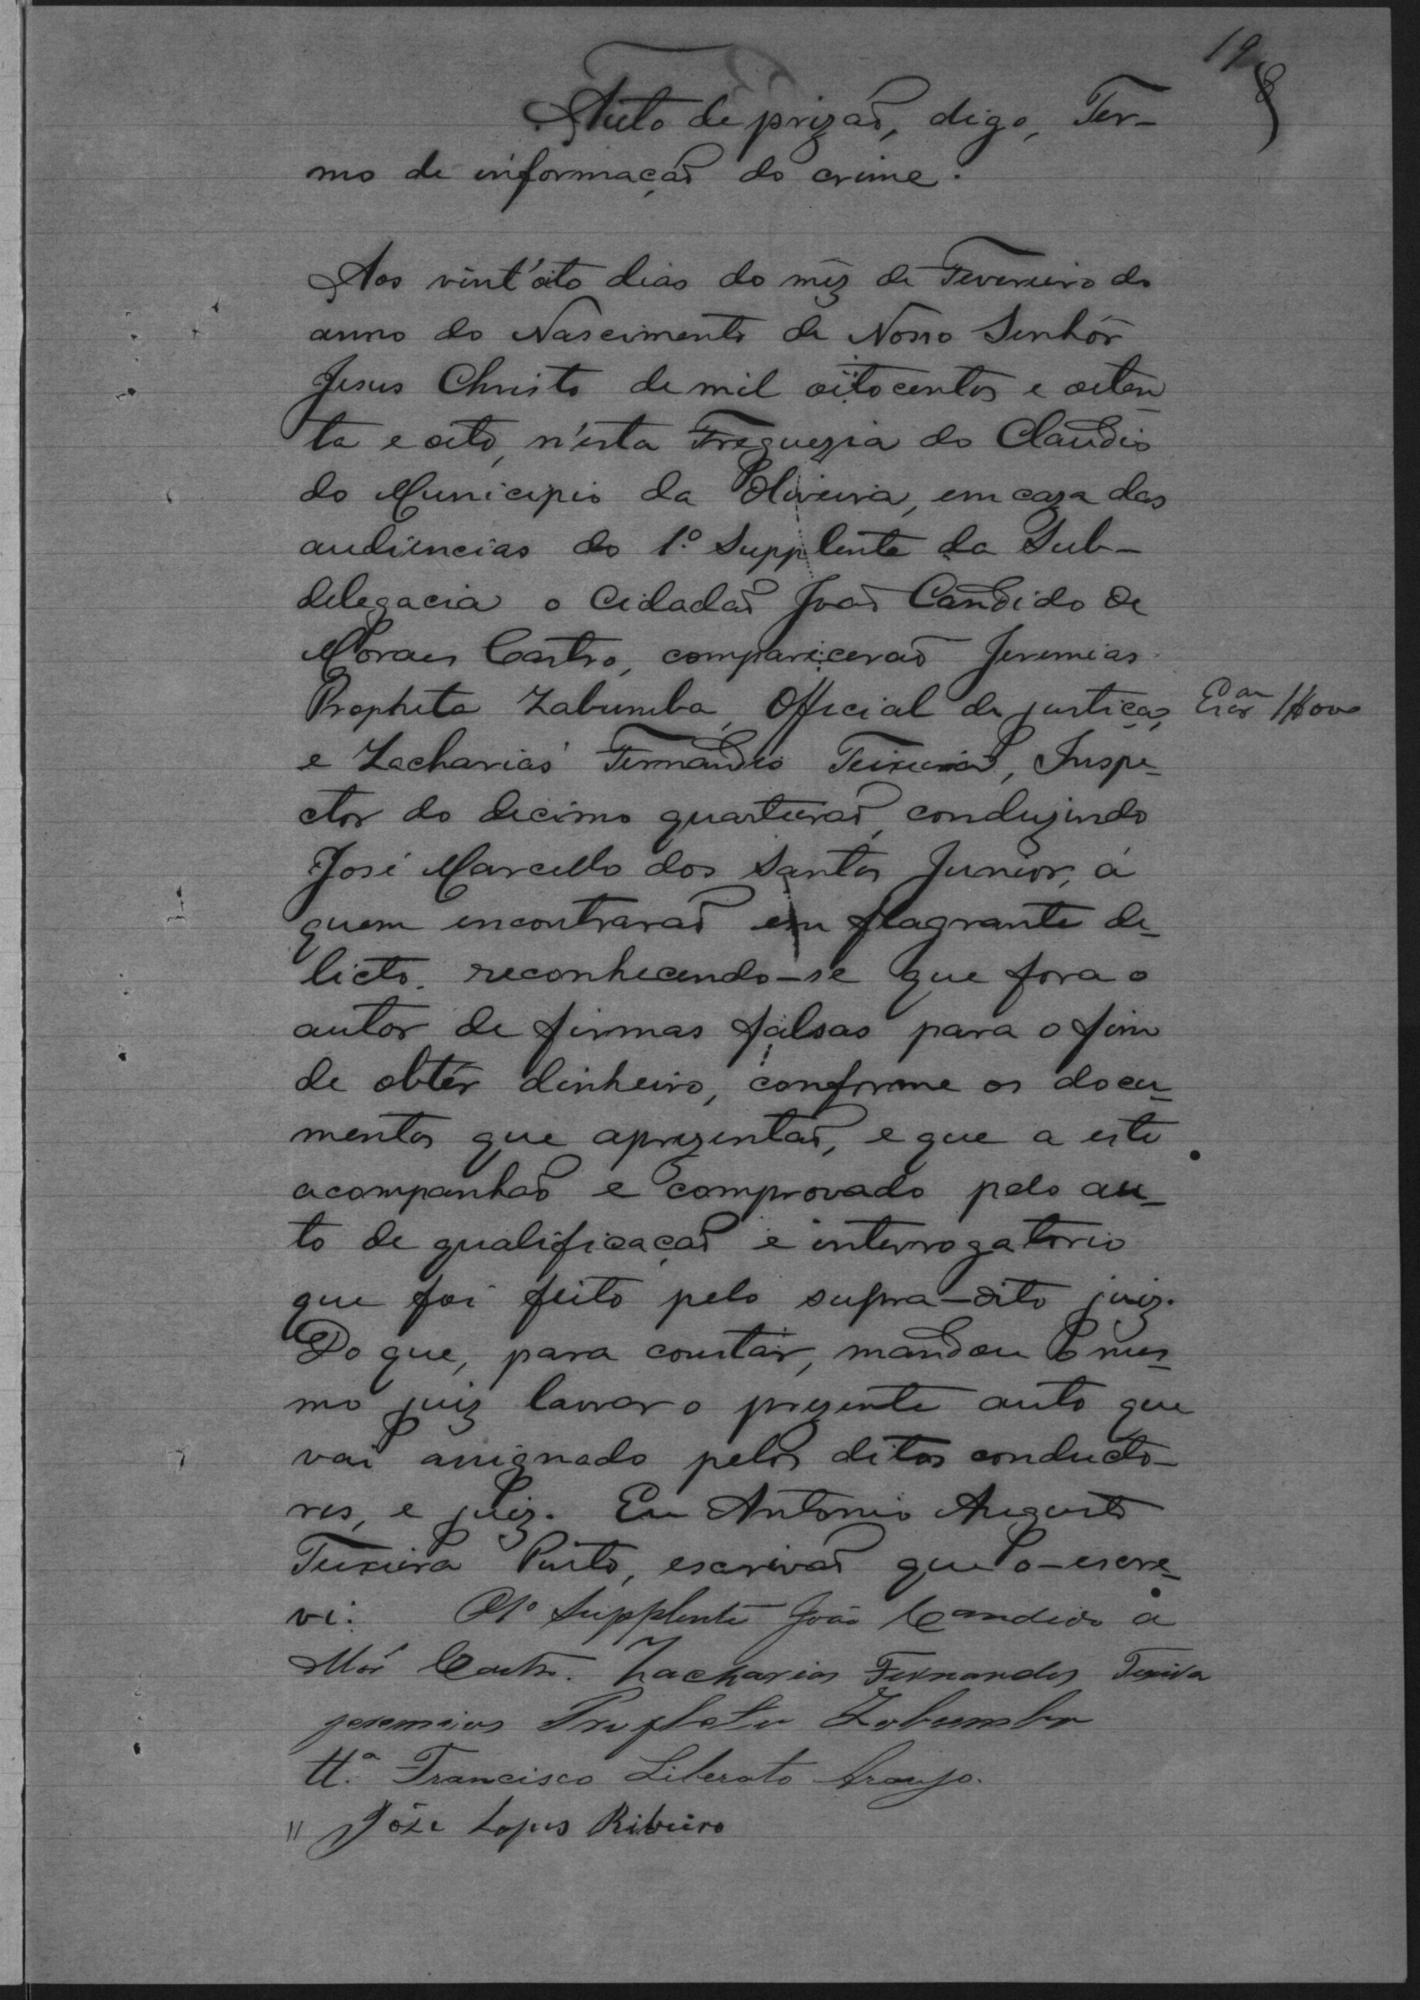 19
8
Auto de prizaõ, digo, Ter-
mo de informaçaõ do crime.
Aos vint'oito dias do mêz de Fevereiro do
anno do Nascimento de Nosso Senhôr
Jesus Christo de mil oitocentos e oiten
ta e oito, n'esta Freguezia do Claudio
do Municipio da Oliveira, em caza das
audiencias do 1º Supplente da Sub-
delegacia o Cidadaõ Joaõ Candido de
Moraes Castro, compariceraõ Jeremias
Propheta Zabumba, Official de justiça,
e Zacharias Fernandes Teixeira, Inspe-
ctor do decimo quarteiraõ, conduzindo
José Marcello dos Santos Junior, á
quem encontraraõ em flagrante de-
licto. reconhecendo-se que fora o
autor de firmas falsas para o fim
de obtêr dinheiro, conforme os docu-
mentos que aprezentaõ, e que a este
acompanhaõ e comprovado pelo au-
to de qualificaçaõ e interrogatorio
que foi feito pelo supra-dito juiz.
Do que, para constar, mandou o mes-
mo juiz lavrar o prezente auto que
vai assignado pelos ditos conducto-
res, e juiz. Eu Antonio Augusto
Teixeira Pinto, escrivaõ que o-escre-
vi. O 1º Supplente João Candido
Castro. Zacharias Fernandes Teixeira
jeremias Propheta Zabumba
tt.ª Francisco Liberato Araujo.
" Józe Lopes Ribeiro